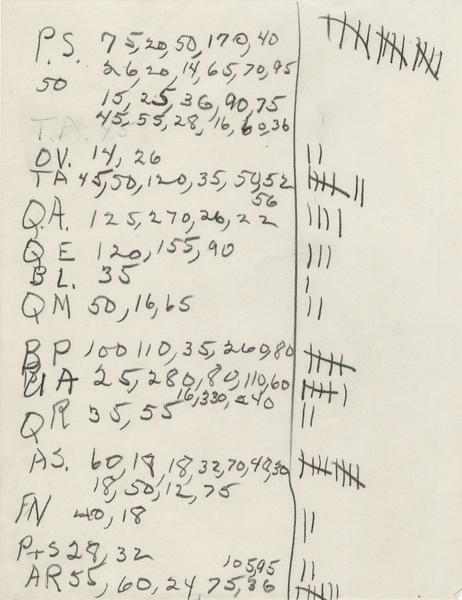 P.S. 75,20,50,170,40
26,20,14,65,70,95
50
15,25,36,90,75
T.A. 45
45,55,28,16,60,36
OV. 14,26
TA 45,50,120,35,50,52
56
Q.A. 125,270,26,22
QE 120,155,90
BL. 35
QM 50,16,65
BP 100 110,35,260,80
BA 25,280,80,110,60
16,330,240
QR 35,55
AS. 60,18,18,32,70,48,30
18,50,12,75
FN 40,18
P+S 28,32
10595
AR 55,60,24,75,36